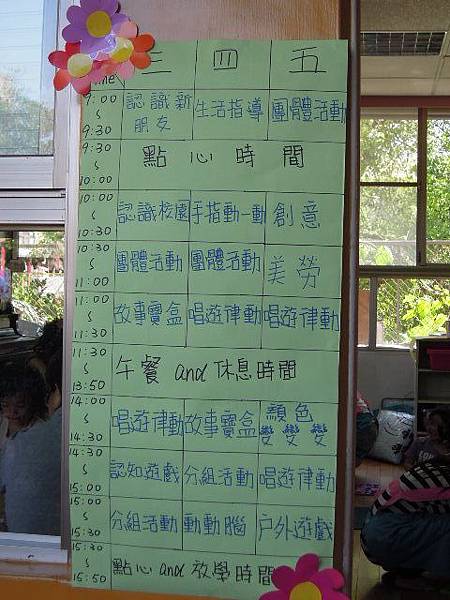 三 四 五
9:00 ~ 9:30 認識新朋友 生活指導 團體活動
9:30 ~ 10:00 點心時間
10:00 ~ 10:30 認識校園 手指動一動 創意
10:30 ~ 11:00 團體活動 團體活動 美勞
11:00 ~ 11:30 故事寶盒 唱遊律動 唱遊律動
11:30 ~ 13:50 午餐 and 休息時間
14:00 ~ 14:30 唱遊律動 故事寶盒 顏色變變變
14:30 ~ 15:00 認知遊戲 分組活動 唱遊律動
15:00 ~ 15:30 分組活動 動動腦 戶外遊戲
15:30 ~ 15:50 點心 and 放學時間